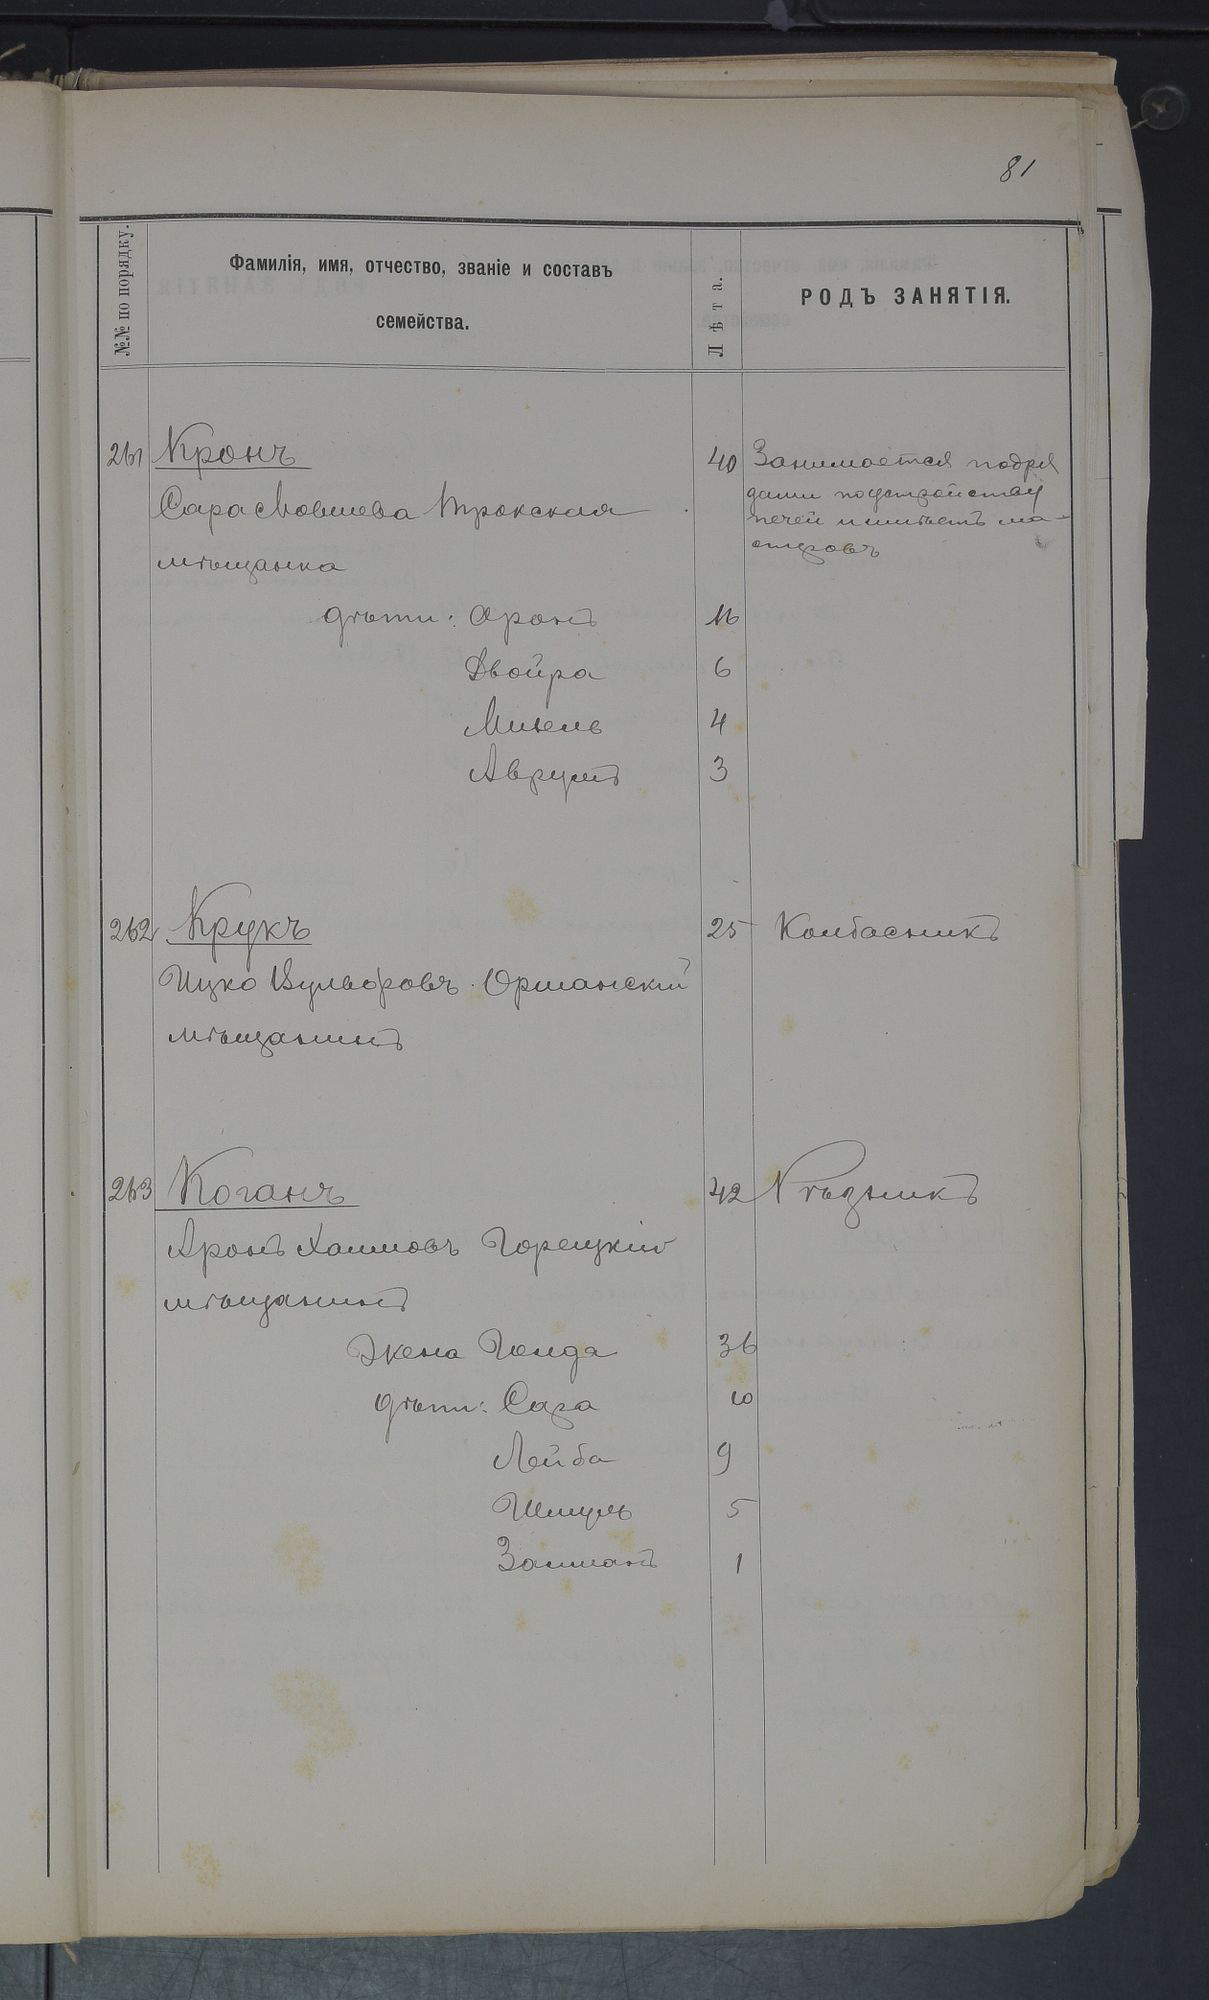 81
№№ по порядку.
Фамилія, имя, отчество, званіе и составъ
семейства.
Лѣта.
РОДЪ ЗАНЯТІЯ.
261 Кронъ 40 Занимается подря
Сара Мовшева Трокская дами по устройству
печей и имѣетъ ма-
мѣщанка стеровъ
дѣти: Аронъ 16
Двойра 6
Михель 4
Аврумъ 3
262 Крукъ 25 Колбасникъ
Ицко Вульфовъ Оршанскій
мѣщанинъ
263 Коганъ 42 Рѣзникъ
Аронъ Хаимовъ Горецкій
мѣщанинъ
Жена Голда 36
дѣти: Сара 10
Лейба 9
Шмуль 5
Залманъ 1